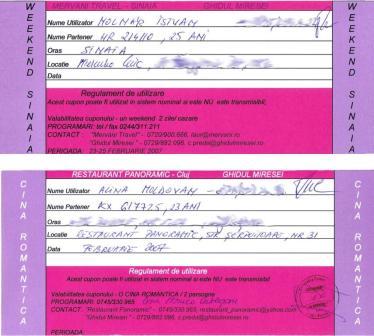 MERVANI TRAVEL - SINAIA GHIDUL MIRESEI
WEEKEND SINAIA
Nume Utilizator MOLNAR ISTVAN
Nume Partener HR 214110, 25 ANI
Oras SINAIA
Locatie Miercurea Ciuc,
Data
Regulament de utilizare
Acest cupon poate fi utilizat in sistem nominal si este NU este transmisibil;
Valabilitatea cuponului - un weekend 2 zile/ cazare
PROGRAMARI: tel / fax 0244/311.211
CONTACT : "Mervani Travel" - 0720/900.666,
"Ghidul Miresei" - 0729/892 098,
PERIOADA: 23-25 FEBRUARIE 2007
WEEKEND SINAIA
RESTAURANT PANORAMIC - Cluj GHIDUL MIRESEI
CINA ROMANTICA
Nume Utilizator ALINA MOLDOVAN
Nume Partener KX 617725, 23 ANI
Oras
Locatie RESTAURANT PANORAMIC, STR. NR 31
Data FEBRUARIE 2007
Regulament de utilizare
Acest cupon poate fi utilizat in sistem nominal si este NU este transmisibil
Valabilitatea cuponului - O CINA ROMANTICA / 2 persoane
PROGRAMARI: 0745/330 965
CONTACT: "Restaurant Panoramic" - 0745/330 965, restaurant_panoramic@yahoo.com
"Ghidul Miresei" - 0729/892 098,
PERIOADA:
CINA ROMANTICA